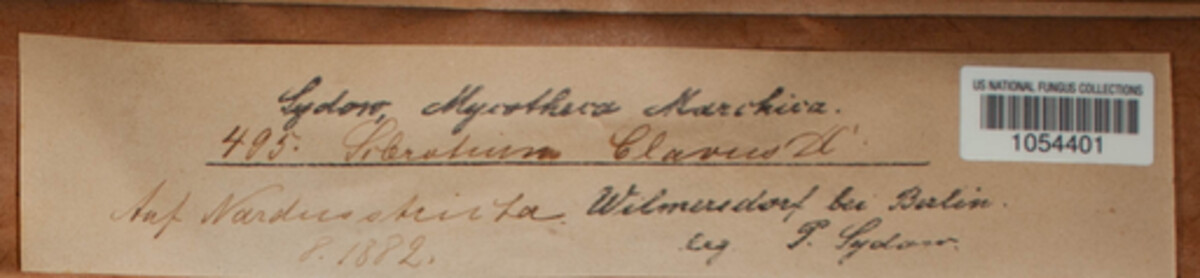 Sydow, Mycotheca Marchica.
495. Sclerotium Clavus DC
Auf Nardus stricta. Wilmersdorf bei Berlin.
8. 1882. leg. P. Sydow.
US NATIONAL FUNGUS COLLECTIONS
1054401